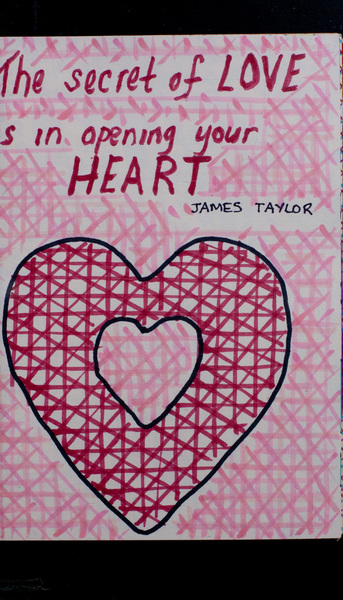 The secret of LOVE
s in opening your
HEART
JAMES TAYLOR